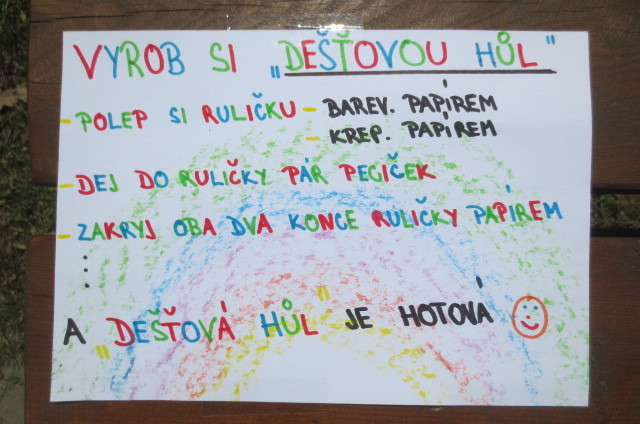 VYROB SI „DEŠŤOVOU HŮL"
- POLEP SI RULIČKU - BAREV. PAPÍREM
- KREP. PAPÍREM
- DEJ DO RULIČKY PÁR PECIČEK
- ZAKRYJ OBA DVA KONCE RULIČKY PAPÍREM
⋮
A „DEŠŤOVÁ HŮL" JE HOTOVÁ